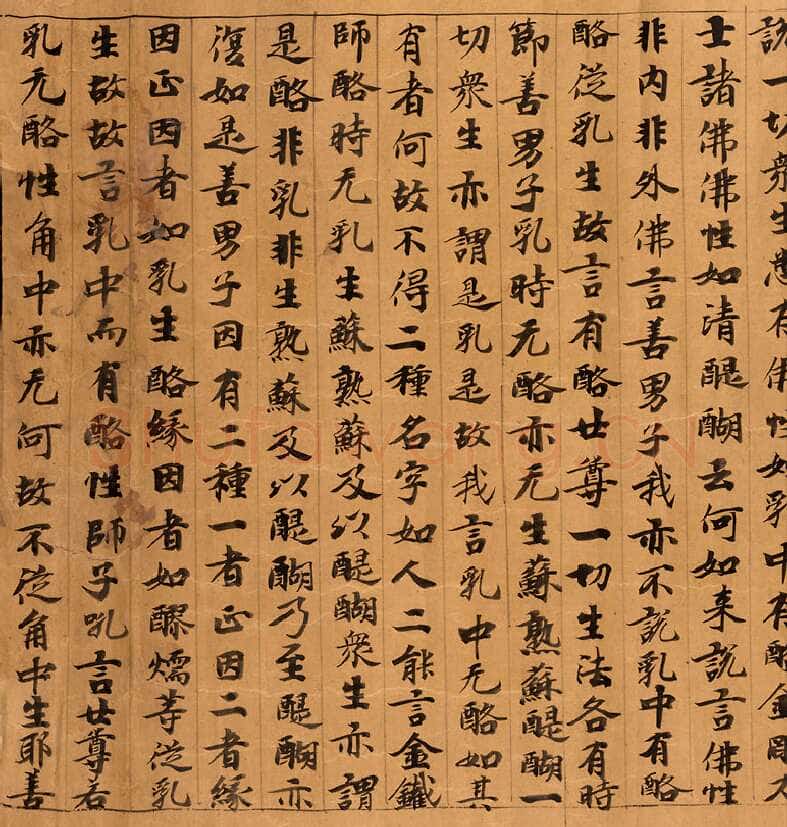 說一切衆生悉有佛性如乳中有酪金剛力
士諸佛佛性如清醍醐云何如来說言佛性
非内非外佛言善男子我亦不說乳中有酪
酪従乳生故言有酪世尊一切生法各有時
節善男子乳時无酪亦无生蘇熟蘇醍醐一
切衆生亦謂是乳是故我言乳中无酪如其
有者何故不得二種名字如人二能言金鐵
師酪時无乳生蘇熟蘇及以醍醐衆生亦謂
是酪非乳非生熟蘇及以醍醐乃至醍醐亦
復如是善男子因有二種一者正因二者縁
因正因者如乳生酪縁因者如醪煗等従乳
生故故言乳中而有酪性師子吼言世尊若
乳无酪性角中亦无何故不従角中生耶善
shufawang.CN